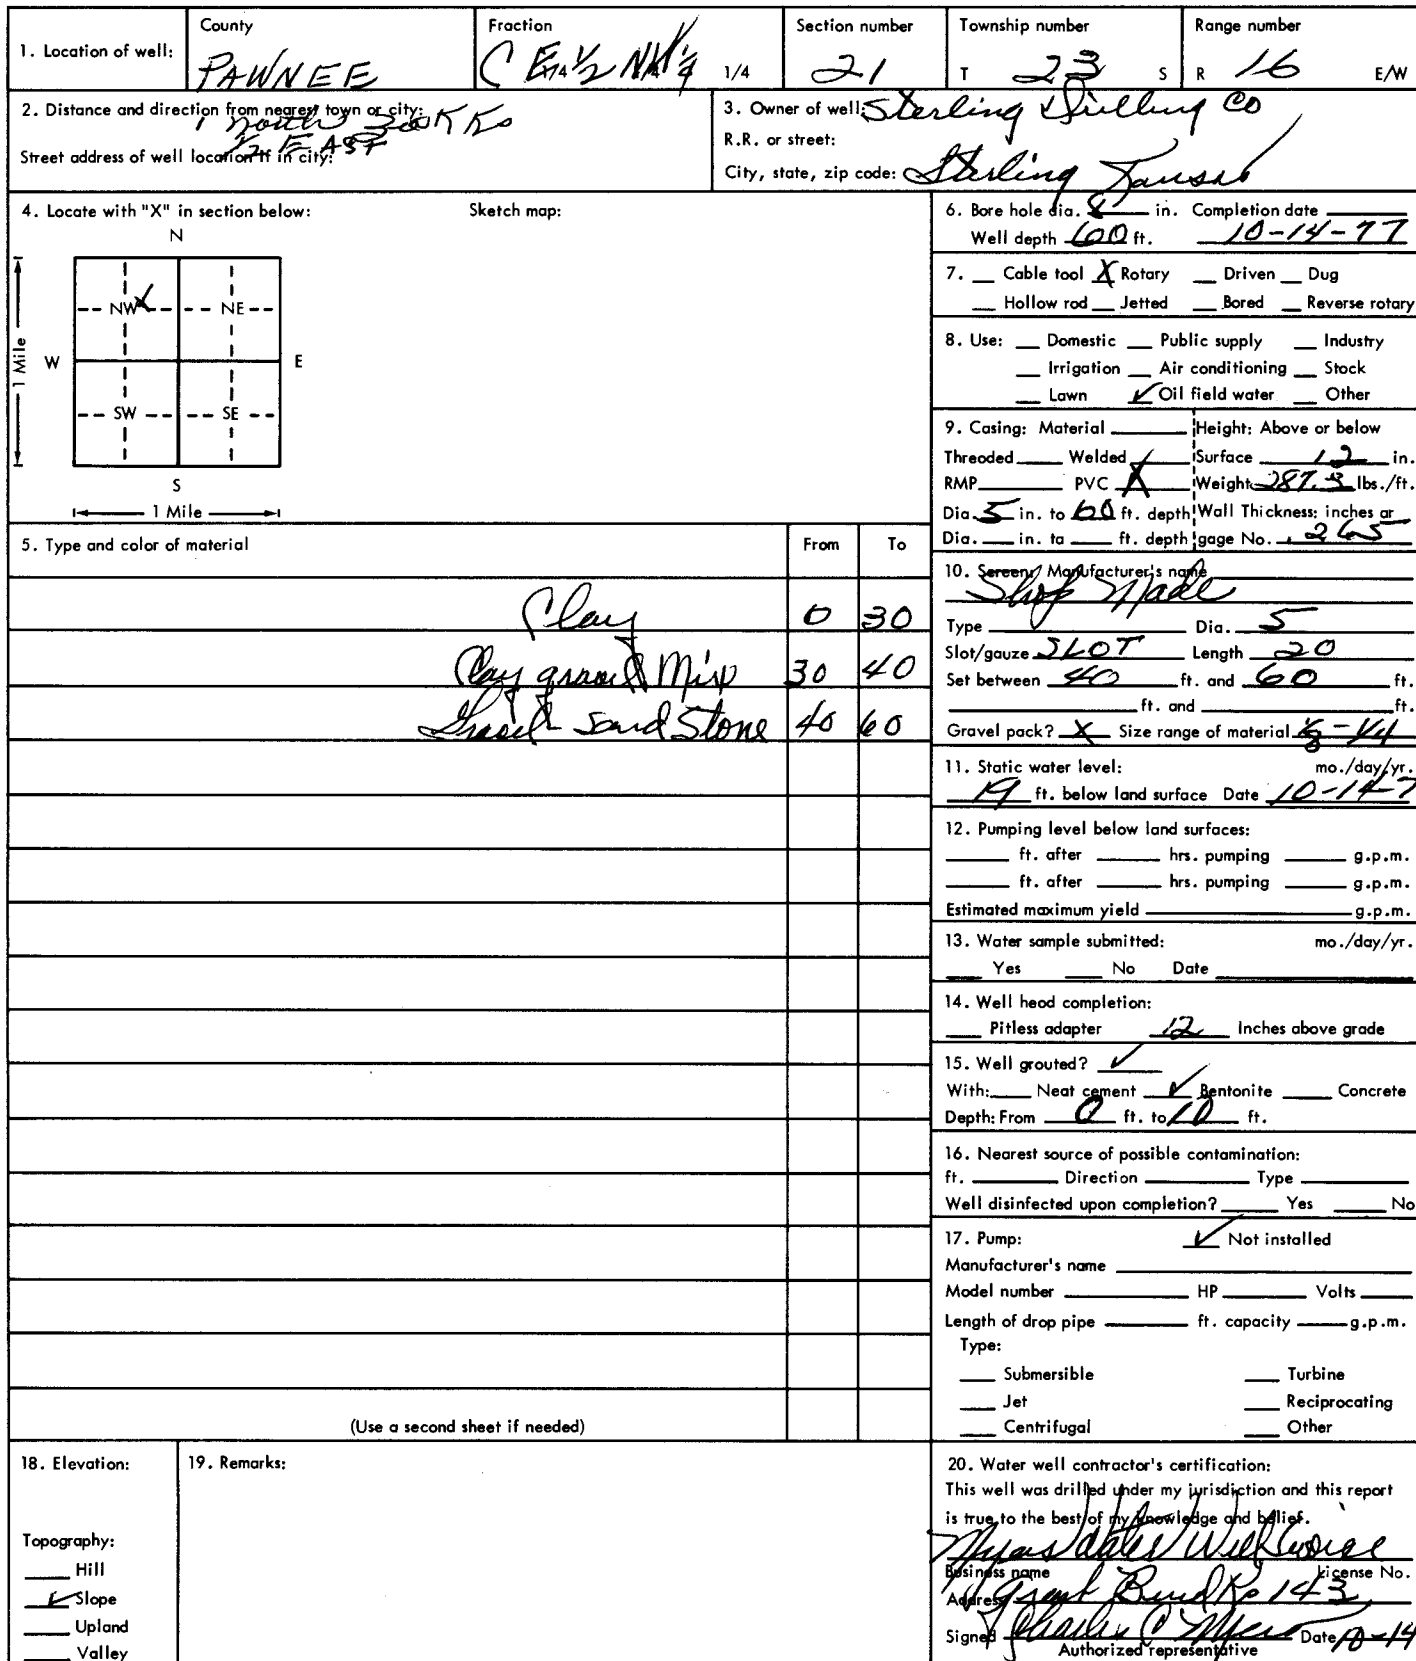 1. Location of well:
County
PAWNEE
Fraction
C E 1/2 NW 1/4 1/4
Section number
21
Township number
T 23 S
Range number
R 16 E/W
2. Distance and direction from nearest town or city:
1 north Ks
1/2 EAST
Street address of well location if in city:
3. Owner of well: Sterling Drilling Co
R.R. or street:
City, state, zip code: Sterling Kansas
4. Locate with "X" in section below:
Sketch map:
N
NW X NE
W E
1 Mile
SW SE
S
1 Mile
5. Type and color of material From To
Clay 0 30
Clay gravel Mix 30 40
Gravel - Sand Stone 40 60
(Use a second sheet if needed)
6. Bore hole dia. 8 in. Completion date
Well depth 60 ft. 10-14-77
7. __ Cable tool X Rotary __ Driven __ Dug
__ Hollow rod __ Jetted __ Bored __ Reverse rotary
8. Use: __ Domestic __ Public supply __ Industry
__ Irrigation __ Air conditioning __ Stock
__ Lawn ✓ Oil field water __ Other
9. Casing: Material ____ Height: Above or below
Threaded ____ Welded ____ Surface 12 in.
RMP ____ PVC X Weight 287.3 lbs./ft.
Dia. 5 in. to 60 ft. depth Wall Thickness: inches or
Dia. __ in. to __ ft. depth gage No. .265
10. Screen: Manufacturer's name
Shop Made
Type ____ Dia. 5
Slot/gauze SLOT Length 20
Set between 40 ft. and 60 ft.
____ ft. and ____ ft.
Gravel pack? X Size range of material 1/8 - 1/4
11. Static water level: mo./day/yr.
19 ft. below land surface Date 10-14-7
12. Pumping level below land surfaces:
____ ft. after ____ hrs. pumping ____ g.p.m.
____ ft. after ____ hrs. pumping ____ g.p.m.
Estimated maximum yield ____ g.p.m.
13. Water sample submitted: mo./day/yr.
__ Yes __ No Date ____
14. Well head completion:
__ Pitless adapter 12 Inches above grade
15. Well grouted? ✓
With: __ Neat cement ✓ Bentonite __ Concrete
Depth: From 0 ft. to 10 ft.
16. Nearest source of possible contamination:
ft. ____ Direction ____ Type ____
Well disinfected upon completion? __ Yes __ No
17. Pump: ✓ Not installed
Manufacturer's name ____
Model number ____ HP ____ Volts ____
Length of drop pipe ____ ft. capacity ____ g.p.m.
Type:
__ Submersible __ Turbine
__ Jet __ Reciprocating
__ Centrifugal __ Other
18. Elevation:
Topography:
__ Hill
✓ Slope
__ Upland
__ Valley
19. Remarks:
20. Water well contractor's certification:
This well was drilled under my jurisdiction and this report
is true to the best of my knowledge and belief.
Myers Water Well Service
Business name License No.
Address Great Bend Ks 143
Signed Charles C Myers Date 10-14
Authorized representative